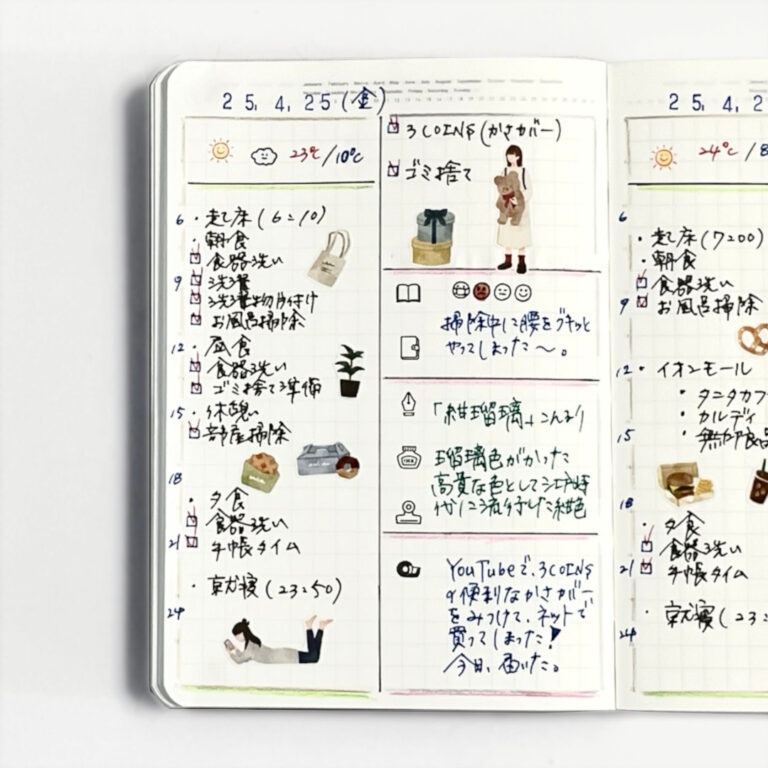 25. 4. 25 (金)
23℃/10℃
6 ・起し床 (6:10)
・朝食
食器洗い
9 洗濯
洗濯物片付け
お風呂掃除
12 ・昼食
食器洗い
ゴミ捨て準備
15 ・休憩
部屋掃除
18
・夕食
食器洗い
21 手帳タイム
・就寝 (23:50)
24
3COINS (かさカバー)
ゴミ捨て
掃除中に腰をグキッと
やってしまった〜。
「紺瑠璃」こんるり
瑠璃色がかった
高貴な色として江戸時
代に流行した紺色
YouTubeで、3COINS
の便利なかさカバー
をみつけて、ネットで
買ってしまった!
今日、届いた。
25. 4. 2
24℃/8
6
・起し床 (7:00)
・朝食
食器洗い
9 お風呂掃除
12 ・イオンモール
・タニタカフ
・カルディ
15 ・無印良品
18
・夕食
食器洗い
21 手帳タイム
・就寝 (23:
24